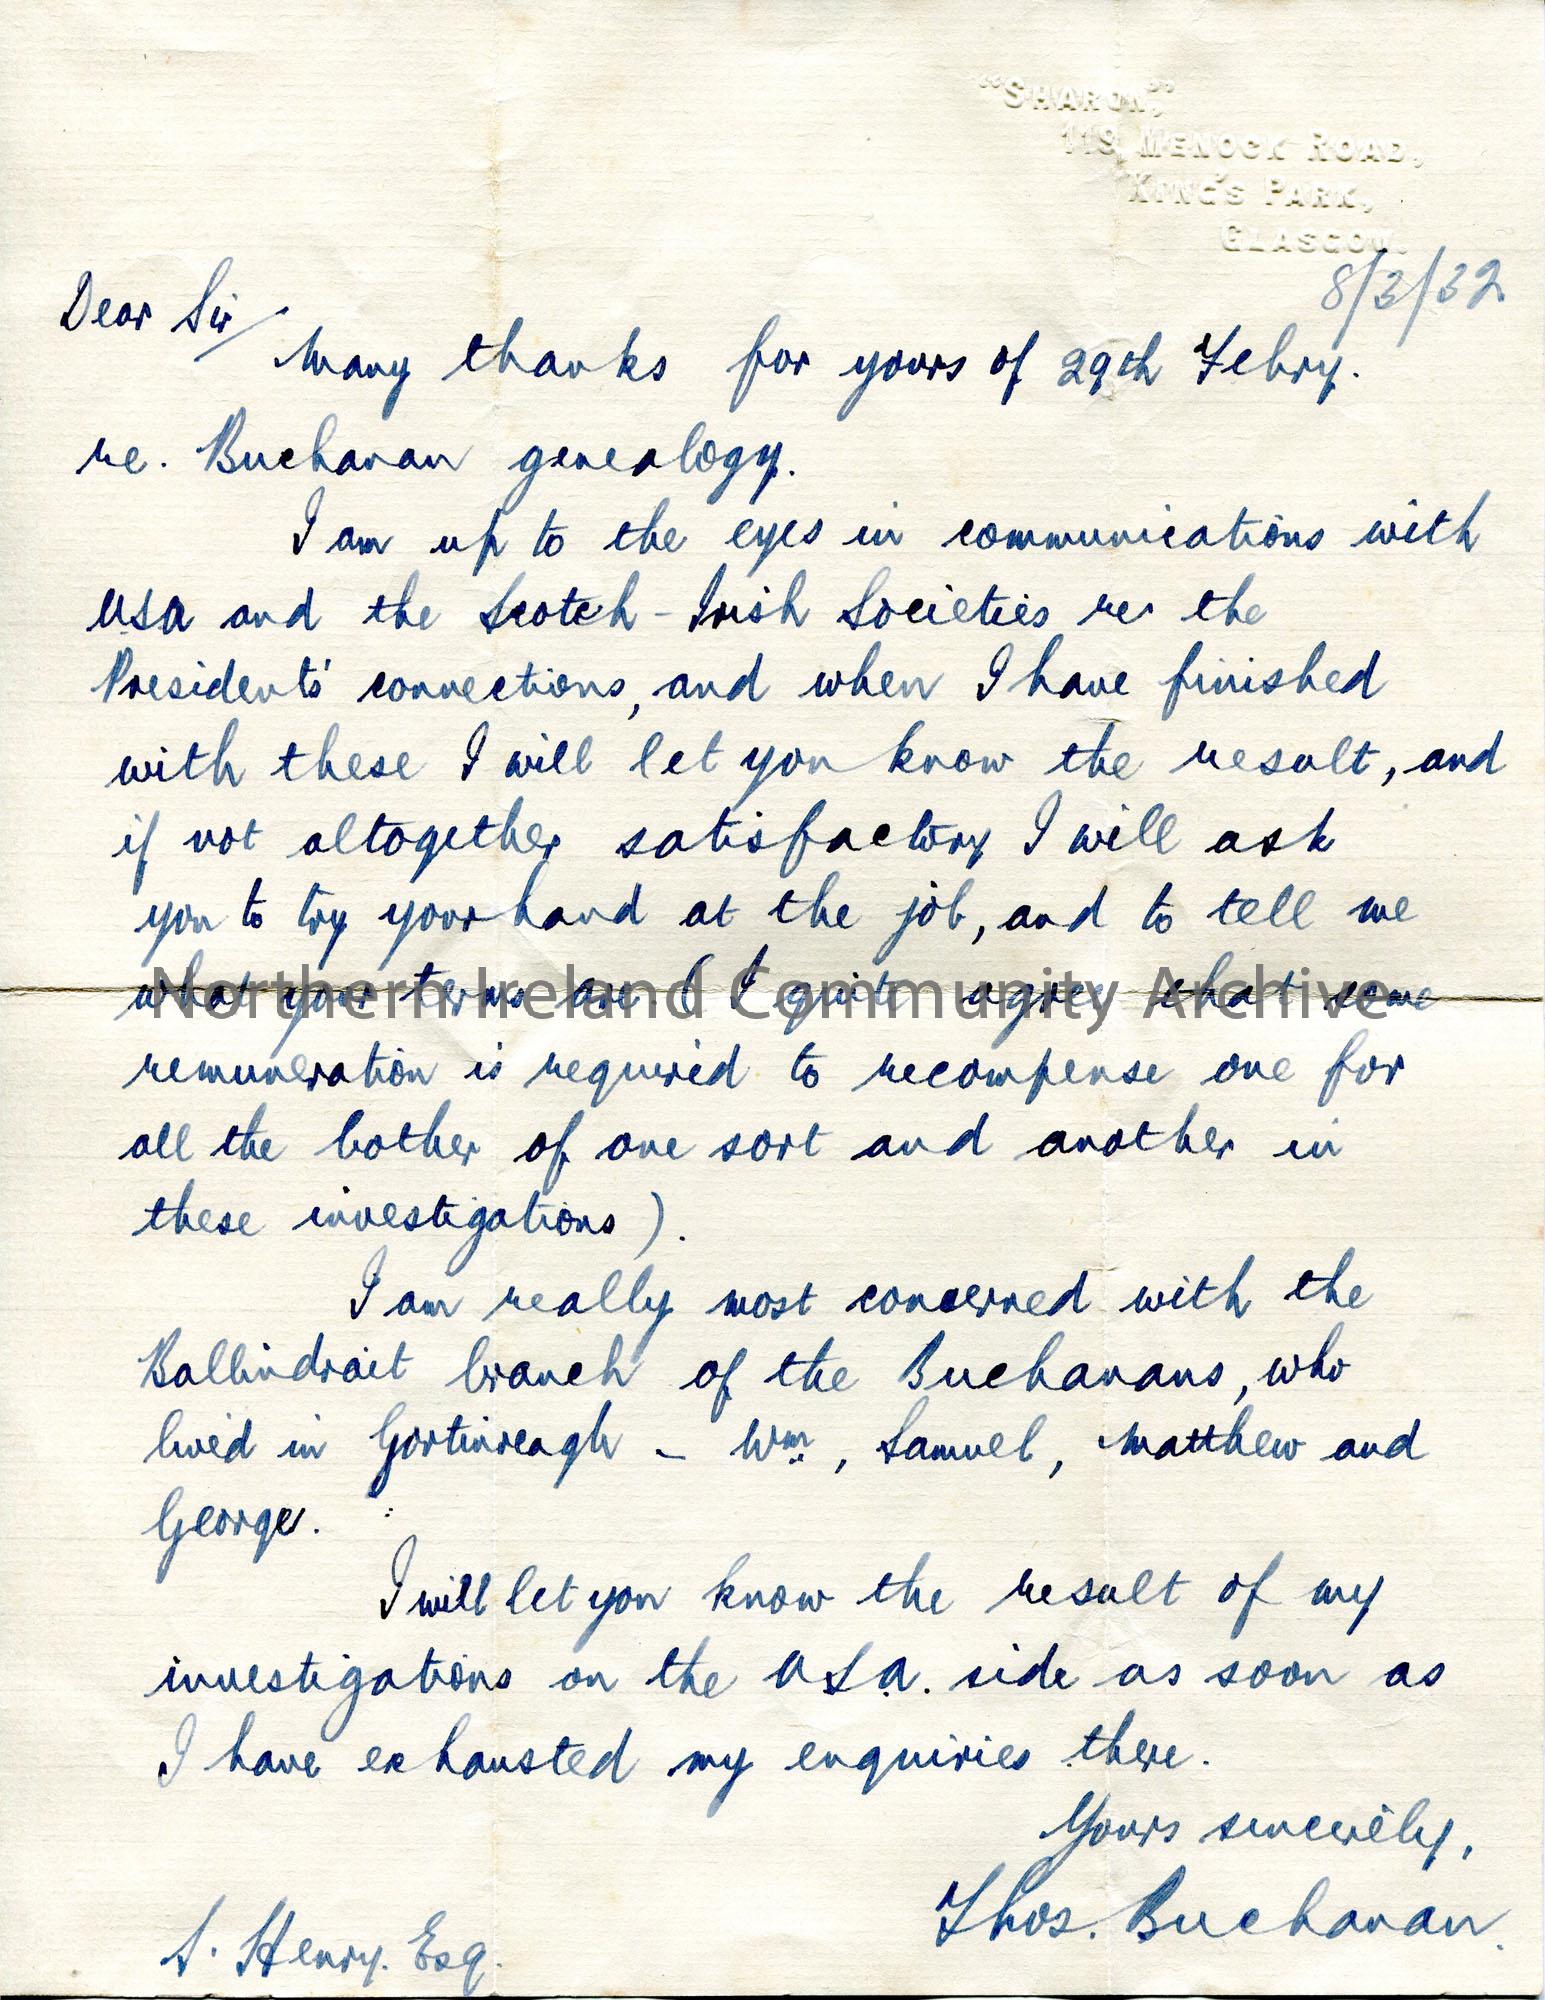 "SHARON,"
119, MENOCK ROAD,
KING'S PARK,
GLASGOW.
8/3/32
Dear Sir/
Many thanks for yours of 29th Febry.
re. Buchanan genealogy.
I am up to the eyes in communications with
USA and the Scotch-Irish Societies re. the
Presidents' connections, and when I have finished
with these I will let you know the result, and
if not altogether satisfactory I will ask
you to try your hand at the job, and to tell me
what your terms are. (I quite agree that some
Northern Ireland Community Archive
remuneration is required to recompense one for
all the bother of one sort and another in
these investigations).
I am really most concerned with the
Ballindrait branch of the Buchanans, who
lived in Gortinreagh - Wm., Samuel, Matthew and
George.
I will let you know the result of my
investigations on the U.S.A. side as soon as
I have exhausted my enquiries there.
Yours sincerely,
Thos. Buchanan.
S. Henry. Esq.